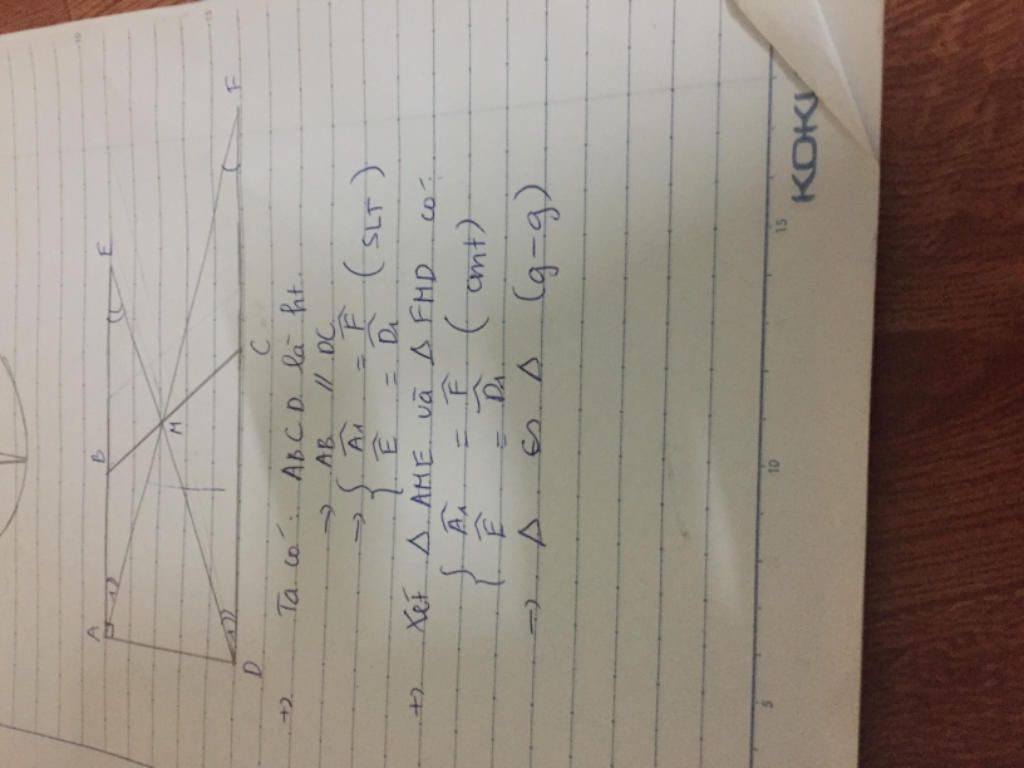 A B E
M
D C F
+) Ta có: ABCD là ht.
→ AB // DC
→ { Â1 = F̂
{ Ê = D̂1 (SLT)
+) Xét Δ AME và Δ FMD có:
{ Â1 = F̂
{ Ê = D̂1 (cmt)
→ Δ ∽ Δ (g-g)
5 10 15
KOKU
10 15